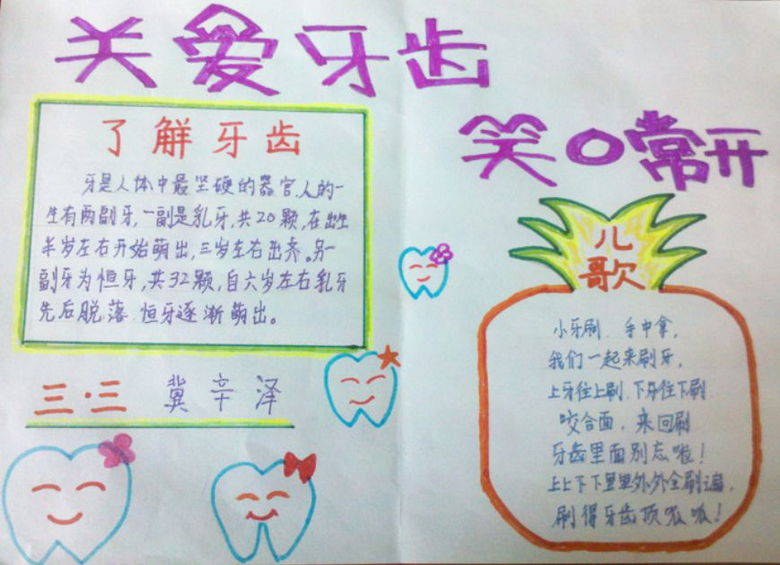 关爱牙齿
笑口常开
了解牙齿
牙是人体中最坚硬的器官.人的一
生有两副牙,一副是乳牙,共20颗,在出生
半岁左右开始萌出,三岁左右出齐。另一
副牙为恒牙,共32颗,自六岁左右乳牙
先后脱落.恒牙逐渐萌出。
三·三 冀辛泽
儿
歌
小牙刷.手中拿,
我们一起来刷牙,
上牙往上刷.下牙往下刷.
咬合面,来回刷
牙齿里面别忘啦!
上上下下里里外外全刷遍,
刷得牙齿顶呱呱!